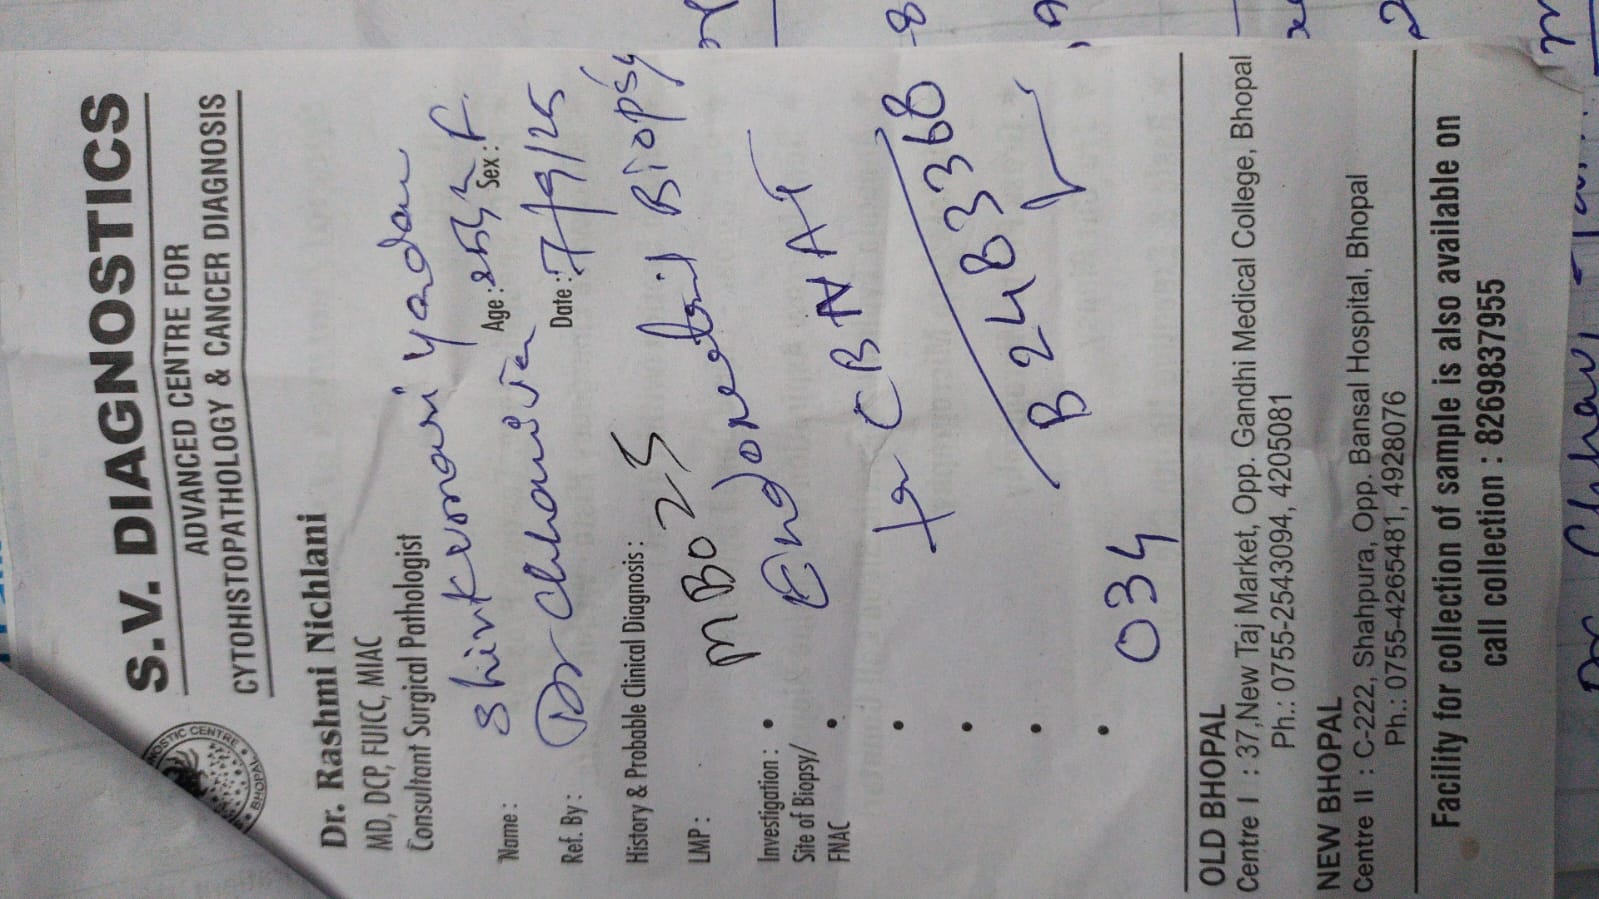 S.V. DIAGNOSTICS
ADVANCED CENTRE FOR
CYTOHISTOPATHOLOGY & CANCER DIAGNOSIS
Dr. Rashmi Nichlani
MD, DCP, FUICC, MIAC
Consultant Surgical Pathologist
Name : Shivkumari Yadav
Age : Sex : F.
Ref. By : Dr Date : 7/9/25
History & Probable Clinical Diagnosis :
LMP : MB025
Investigation : • Biopsy
Site of Biopsy/
FNAC
CBNAAT
B2483368
034
OLD BHOPAL
Centre I : 37,New Taj Market, Opp. Gandhi Medical College, Bhopal
Ph.: 0755-2543094, 4205081
NEW BHOPAL
Centre II : C-222, Shahpura, Opp. Bansal Hospital, Bhopal
Ph.: 0755-4265481, 4928076
Facility for collection of sample is also available on
call collection : 8269837955